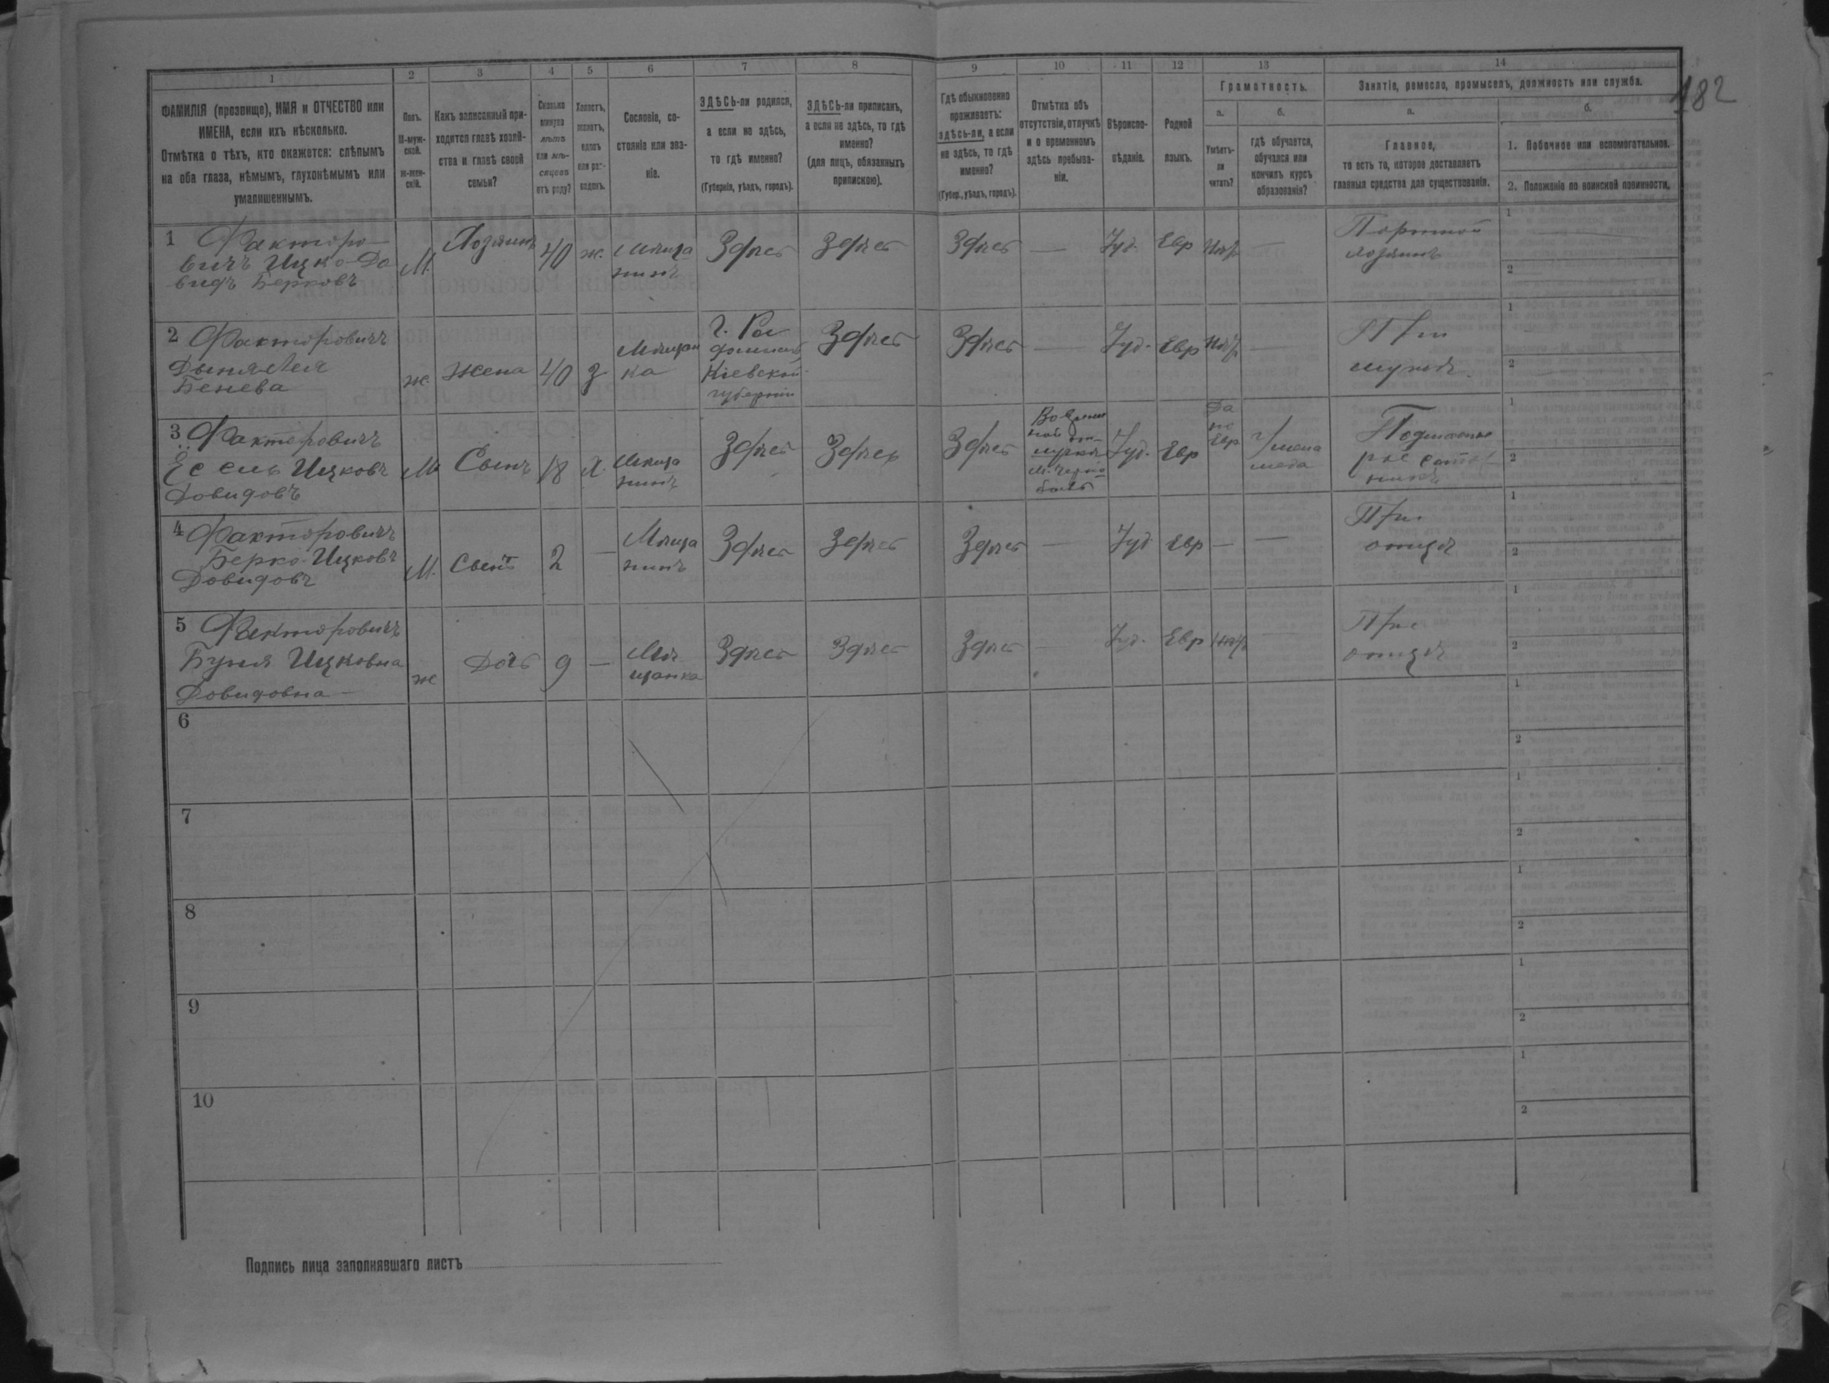 182
1
2
3
4
5
6
7
8
9
10
11
12
13
14
ФАМИЛІЯ (прозвище), ИМЯ и ОТЧЕСТВО или
ИМЕНА, если ихъ нѣсколько.
Отмѣтка о тѣхъ, кто окажется: слѣпымъ
на оба глаза, нѣмымъ, глухонѣмымъ или
умалишеннымъ.
Полъ.
М-муж-
ской.
Ж-жен-
скій.
Какъ записанный при-
ходится главѣ хозяй-
ства и главѣ своей
семьи?
Сколько
минуло
лѣтъ
или мѣ-
сяцевъ
отъ роду?
Холостъ,
женатъ,
вдовъ
или раз-
веденъ.
Сословіе, со-
стояніе или зва-
ніе.
ЗДѢСЬ-ли родился,
а если не здѣсь,
то гдѣ именно?
(Губернія, уѣздъ, городъ).
ЗДѢСЬ-ли приписанъ,
а если не здѣсь, то гдѣ
именно?
(для лицъ, обязанныхъ
припискою).
Гдѣ обыкновенно
проживаетъ:
здѣсь-ли, а если
не здѣсь, то гдѣ
именно?
(Губер., уѣздъ, городъ).
Отмѣтка объ
отсутствіи, отлучкѣ
и о временномъ
здѣсь пребыва-
ніи.
Вѣроиспо-
вѣданіе.
Родной
языкъ.
Грамотность.
а.
Умѣетъ-
ли
читать?
б.
гдѣ обучается,
обучался или
кончилъ курсъ
образованія?
Занятіе, ремесло, промыселъ, должность или служба.
а.
Главное,
то есть то, которое доставляетъ
главныя средства для существованія.
б.
1. Побочное или вспомогательное.
2. Положеніе по воинской повинности.
1 Факторо-
вичъ Ицко-До
видъ Берковъ
М.
Хозяинъ
40
ж.
Мѣща
нинъ
Здѣсь
Здѣсь
Здѣсь
—
Іуд.
Евр
Нѣтъ
—
Портной
хозяинъ
1
2
2 Факторовичъ
Бенева
ж
Жена
40
з
Мѣщан
ка
Кіевской
губерніи
Здѣсь
Здѣсь
—
Іуд.
Евр
Нѣтъ
—
При
мужѣ
1
2
3 Факторовичъ
Ицковъ
Довидовъ
М
Сынъ
18
Х.
Мѣща
нинъ
Здѣсь
Здѣсь
Здѣсь
Іуд.
Евр
Да
по
Евр
1
2
4 Факторовичъ
Берко Ицковъ
Довидовъ
М.
Сынъ
2
—
Мѣща
нинъ
Здѣсь
Здѣсь
Здѣсь
—
Іуд
Евр
—
—
При
отцѣ
1
2
5 Факторовичъ
Буня Ицковна
Довидовна
ж
Дочь
9
—
Мѣ
щанка
Здѣсь
Здѣсь
Здѣсь
—
Іуд.
Евр
Нѣтъ
—
При
отцѣ
1
2
6
1
2
7
1
2
8
1
2
9
1
2
10
1
2
Подпись лица заполнявшаго листъ